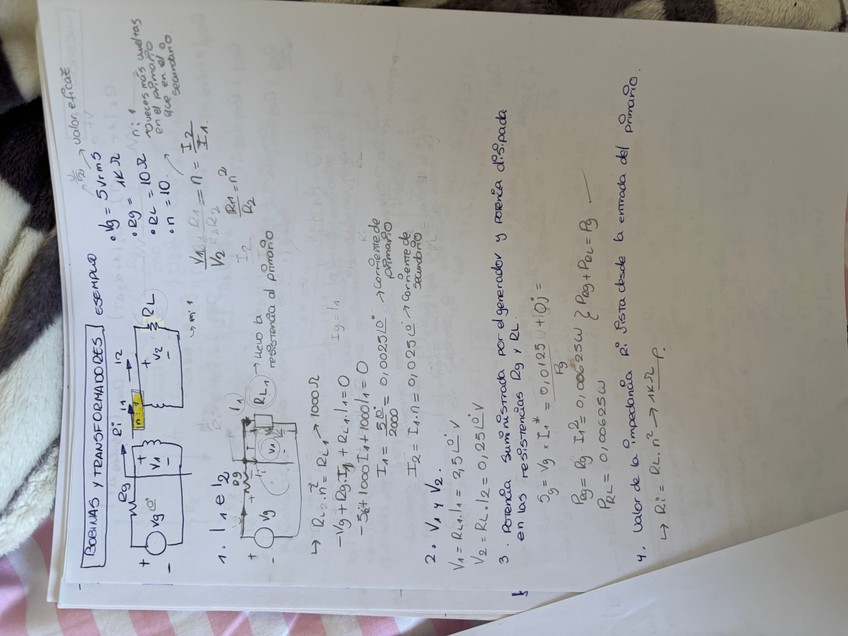 BOBINAS Y TRANSFORMADORES EJEMPLO
valor eficaz
• Vg = 5Vrms
• Rg = 1KΩ
• RL = 10Ω
• n = 10
n:1
veces más vueltas
en el primario
que en el
secundario
Vg Rg Ri I1 n:1 I2 V1 V2 RL
V1/V2 = n = I2/I1
R1/R2 = n²
1. I1 e I2
Vg Rg I1 V1 RL1 → llevo la
resistencia al primario
Ig = I1
↳ RL2·n² = RL1 → 1000Ω
-Vg + Rg·I1 + RL1·I1 = 0
-5 + 1000 I1 + 1000 I1 = 0
I1 = 5∠0°/2000 = 0,0025∠0° → corriente de
primario
I2 = I1·n = 0,025∠0° → corriente de
secundario
2. V1 y V2.
V1 = RL1·I1 = 2,5∠0° V
V2 = RL·I2 = 0,25∠0° V
3. Potencia suministrada por el generador y potencia disipada
en las resistencias Rg y RL
Sg = Vg · I1* = 0,0125 + 0j =
Pg
PRg = Rg I1² = 0,00625W } PRg + PRL = Pg
PRL = 0,00625W
4. Valor de la impedancia Ri vista desde la entrada del primario.
↳ Ri = RL·n² → 1KΩ